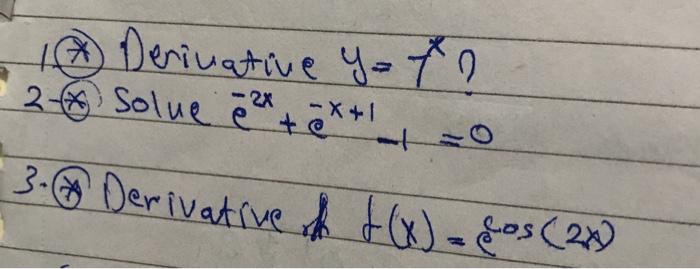 1. * Derivative y = 7^x ?
2- * Solve e^-2x + e^-x+1 - 1 = 0
3. * Derivative of f(x) = e^cos(2x)